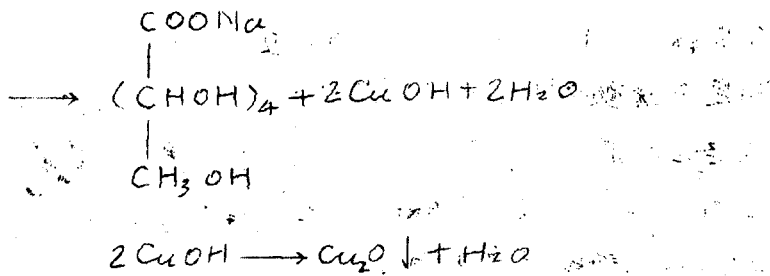 COONa
|
⟶ (CHOH)₄ + 2CuOH + 2H₂O
|
CH₃OH
2CuOH ⟶ Cu₂O ↓ + H₂O